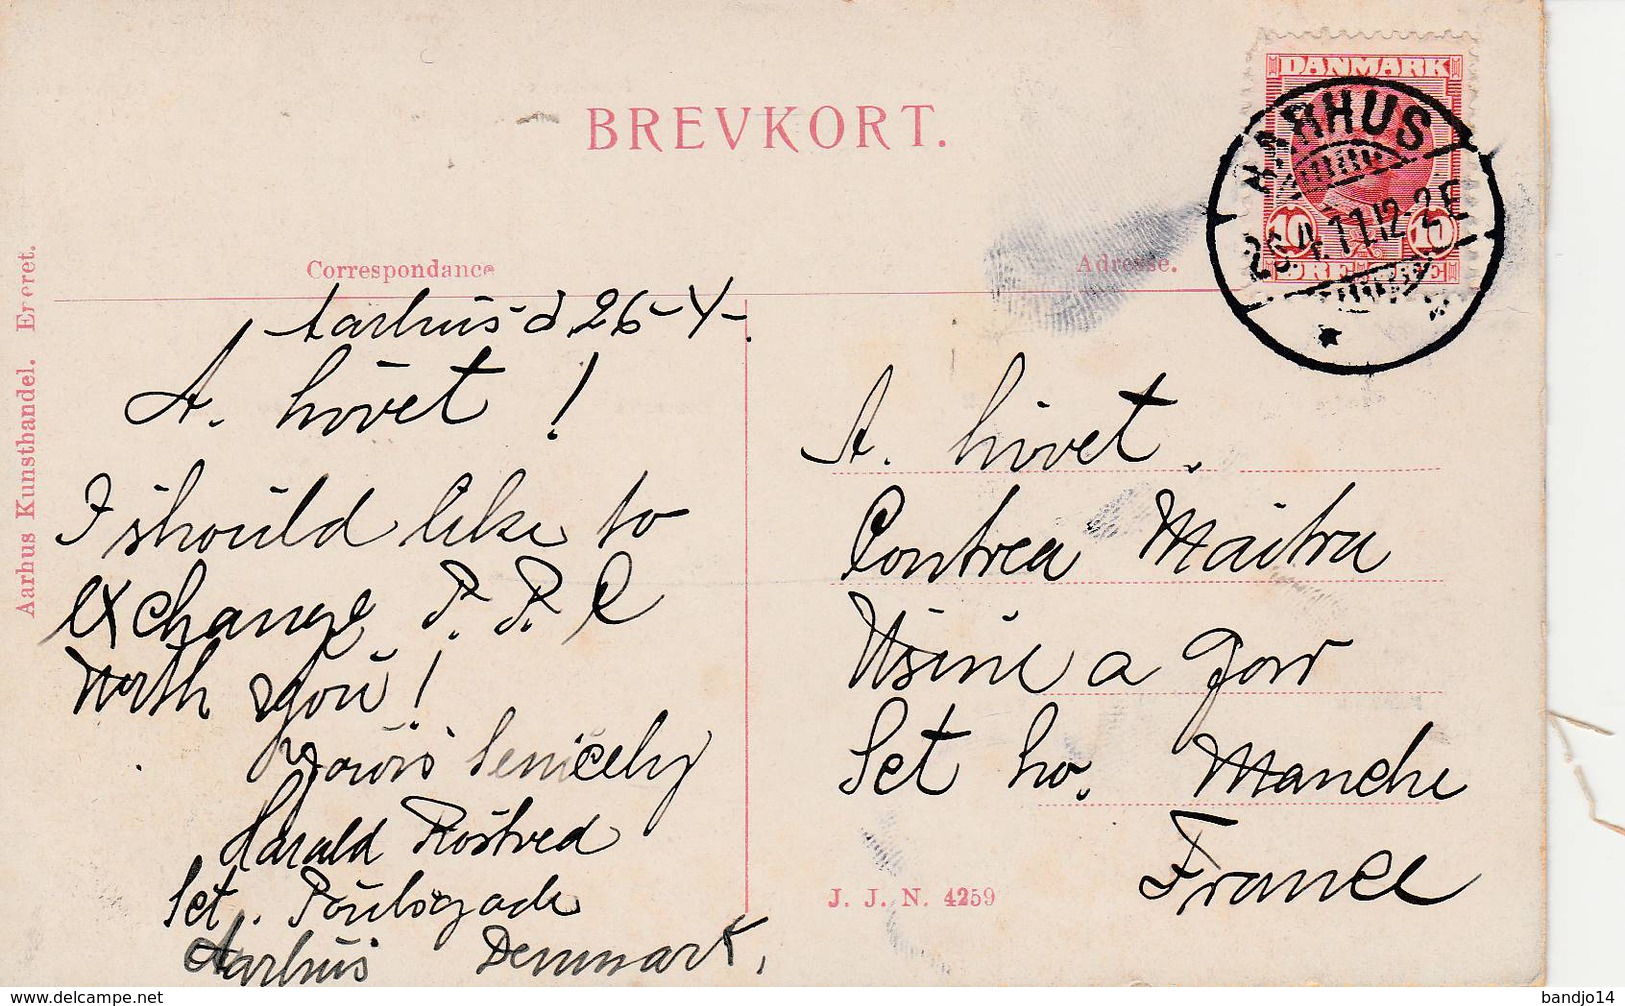 BREVKORT.
DANMARK
10 10
AARHUS
26.4.11.12-2E
Correspondance
Adresse.
Aarhus Kunsthandel. Eneret.
Aarhus d 26-4-.
A. hivet !
I should like to
exchange P. P. C
with you !
Yours
Harald Rostved
Sct. Poulsgade
Aarhus Denmark.
A. hivet.
Contrea Maitra
Usine a
Set ho. Manche
France
J. J. N. 4259
www.delcampe.net
bandjo14